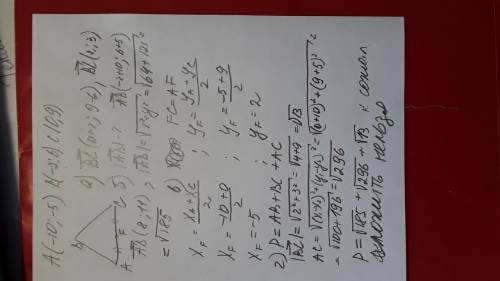 A(-10; -5) B(-2; 6) C(0; 9)
B
A F C
а) BC(0+2; 9-6), BC(2; 3)
б) |AB| - ? AB(-2+10; 6+5)
AB(8; 11); |AB| = √x²+y² = √64+121 =
= √185
в) FC = AF
x_F = (x_A + x_C)/2 ; y_F = (y_A + y_C)/2
x_F = (-10+0)/2 ; y_F = (-5+9)/2
x_F = -5 ; y_F = 2
г) P = AB + BC + AC
|BC| = √2²+3² = √4+9 = √13
AC = √(x-x₀)²+(y-y₀)² = √(0+10)²+(9+5)² =
= √100+196 = √296
P = √185 + √296 + √13 к сожал
сложить нельзя